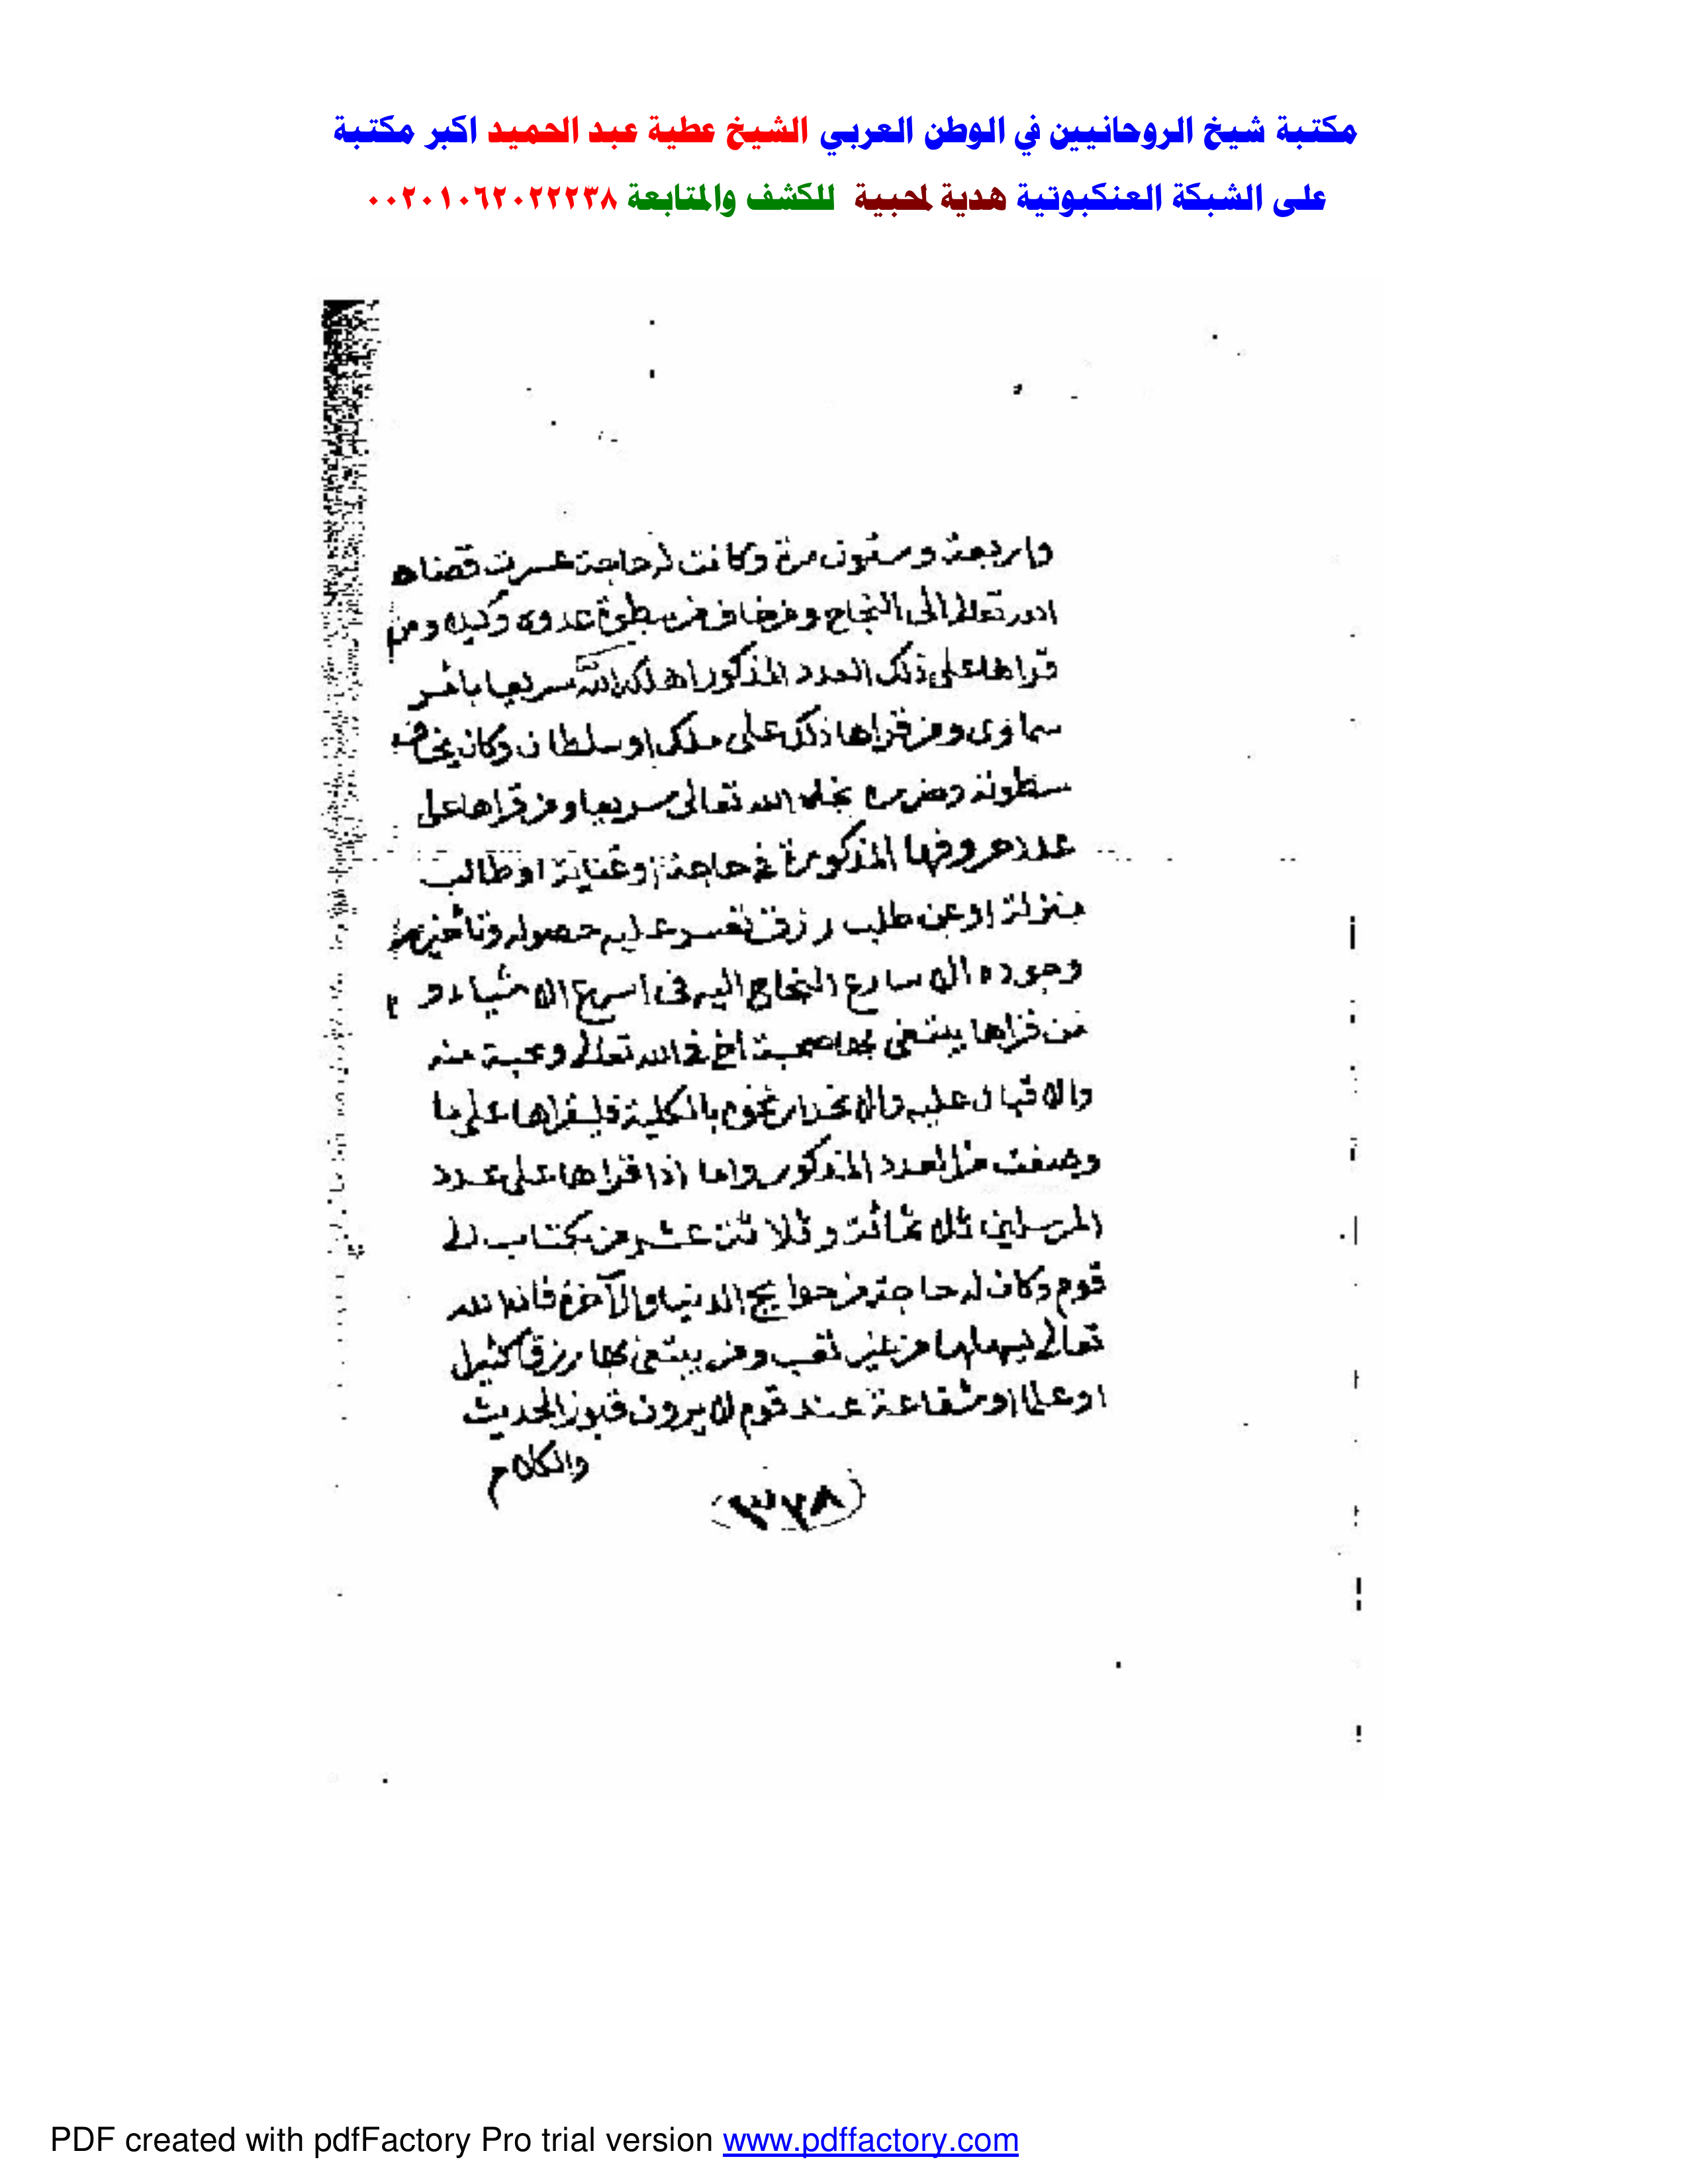 مكتبة شيخ الروحانيين في الوطن العربي الشيخ عطية عبد الحميد اكبر مكتبة
على الشبكة العنكبوتية هدية لمحبية للكشف والمتابعة ٠٠٢٠١٠٦٢٠٢٢٢٣٨
واربعة وستون مرة وكانت له حاجة عسرت قضاه
تعالى الى النجاح ومن خاف من سطوة عدوه وكيده ومن
قراها على ذلك العدد المذكور اهلكه الله سريعا بامر
سماوى ومن قراها ذلك على ملك او سلطان وكان يخاف
سطوته وضرره الله تعالى سريعا ومن قراها على
عدد حروفها المذكورة في حاجة او طالب
منزلة او عن طلب رزق تعسر عليه حصوله وتأخير
وجوده الا سارع النجاح اليه فى اسرع الاشياء و
من قراها يبتغى بها صحبة اخ في الله تعالى ومحبة منه
والاقبال عليه والانحدار نحوه بالكلية فليقراها على ما
وصفت من العدد المذكور واما اذا قراها على عدد
المرسلين ثلاثمائة وثلاثة عشر من
قوم وكان له حاجة من حوايج الدنيا والآخرة فان الله
تعالى يسهلها من غير تعب ومن يبتغى بها رزقا
او علما او شفاعة عند قوم لا يرون الحديث
والكلام
(٣٧٨)
PDF created with pdfFactory Pro trial version www.pdffactory.com